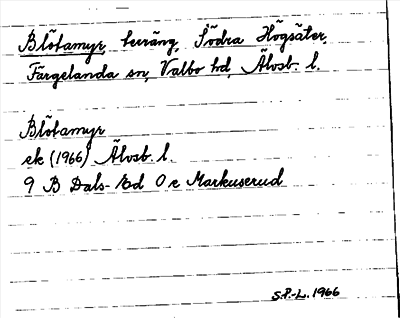 Blötamyr, terräng, Södra Högsäter,
Färgelanda sn, Valbo hd, Älvsb. l.
Blötamyr
ek (1966) Älvsb. l.
9 B Dals-Ed O e Markuserud
S.P.-L. 1966